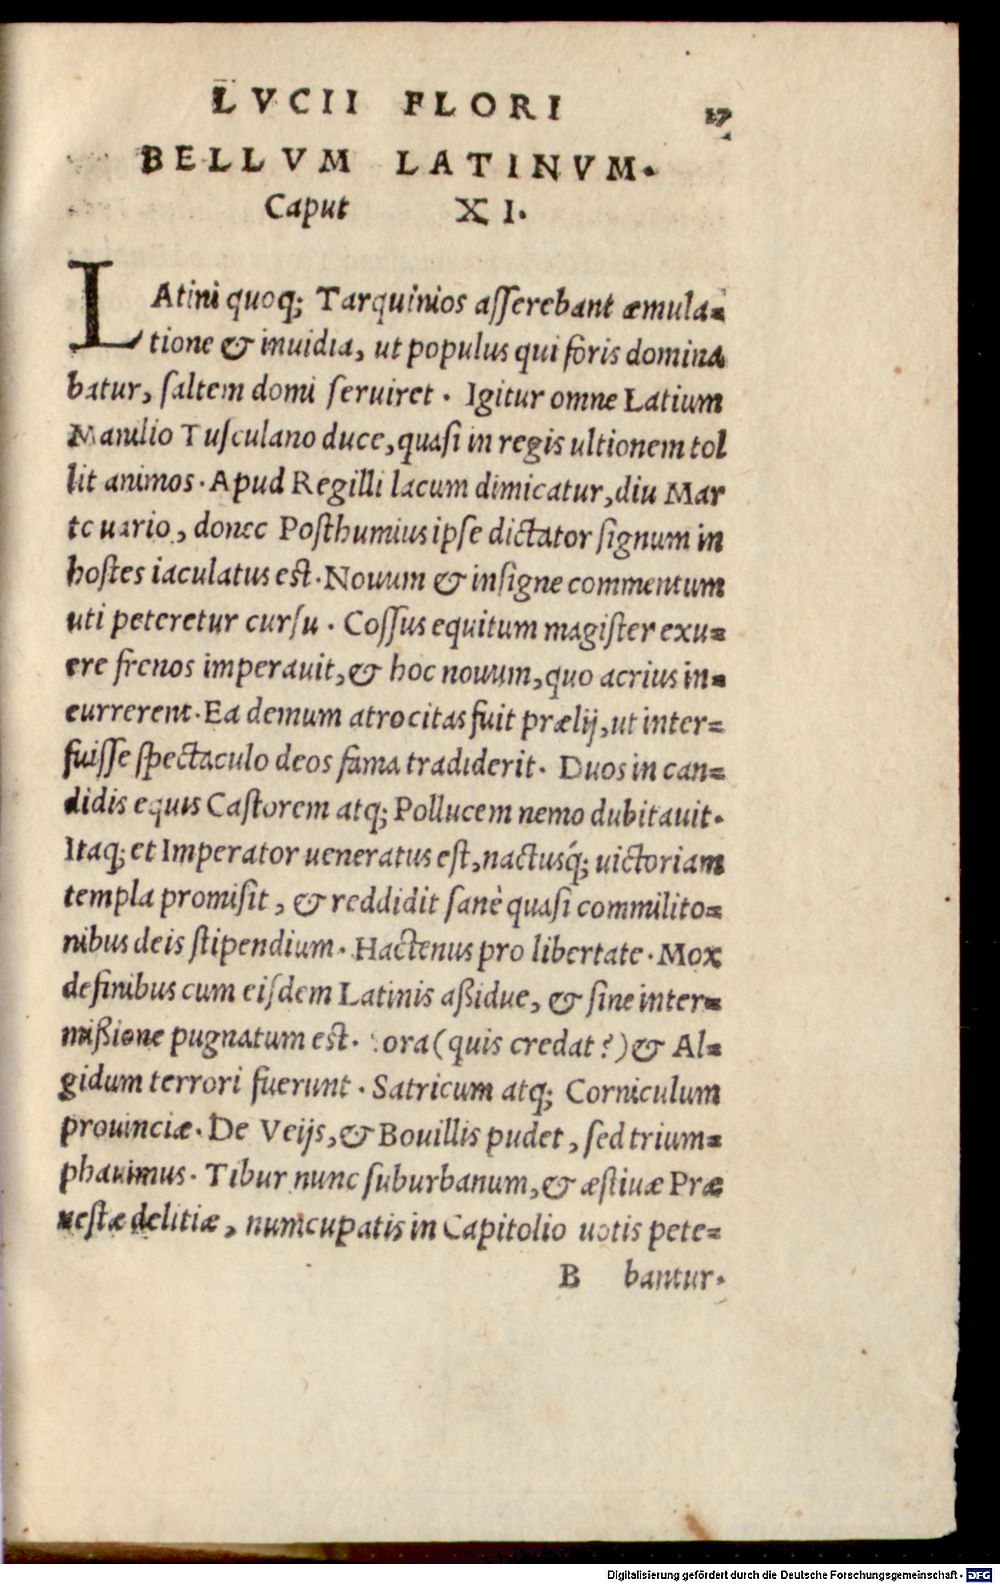 LVCII FLORI
17
BELLVM LATINVM.
Caput XI.
LAtini quoq; Tarquinios aſſerebant æmula=
tione & inuidia, ut populus qui foris domina
batur, ſaltem domi ſeruiret. Igitur omne Latium
Manilio Tuſculano duce, quaſi in regis ultionem tol
lit animos. Apud Regilli lacum dimicatur, diu Mar
te uario, donec Poſthumius ipſe dictator ſignum in
hoſtes iaculatus eſt. Nouum & inſigne commentum
uti peteretur curſu. Coſſus equitum magiſter exu=
ere frenos imperauit, & hoc nouum, quo acrius in=
currerent. Ea demum atrocitas fuit prælij, ut inter=
fuiſſe ſpectaculo deos fama tradiderit. Duos in can=
didis equis Caſtorem atq; Pollucem nemo dubitauit.
Itaq; et Imperator ueneratus eſt, nactusq́; uictoriam
templa promiſit, & reddidit ſanè quaſi commilito=
nibus deis ſtipendium. Hactenus pro libertate. Mox
definibus cum eiſdem Latinis aßidue, & ſine inter=
mißione pugnatum eſt. ora (quis credat?) & Al=
gidum terrori fuerunt. Satricum atq; Corniculum
prouinciæ. De Veijs, & Bouillis pudet, ſed trium=
phauimus. Tibur nunc ſuburbanum, & æſtiuæ Præ
neſtæ delitiæ, numcupatis in Capitolio uotis pete=
B bantur.
Digitalisierung gefördert durch die Deutsche Forschungsgemeinschaft - DFG